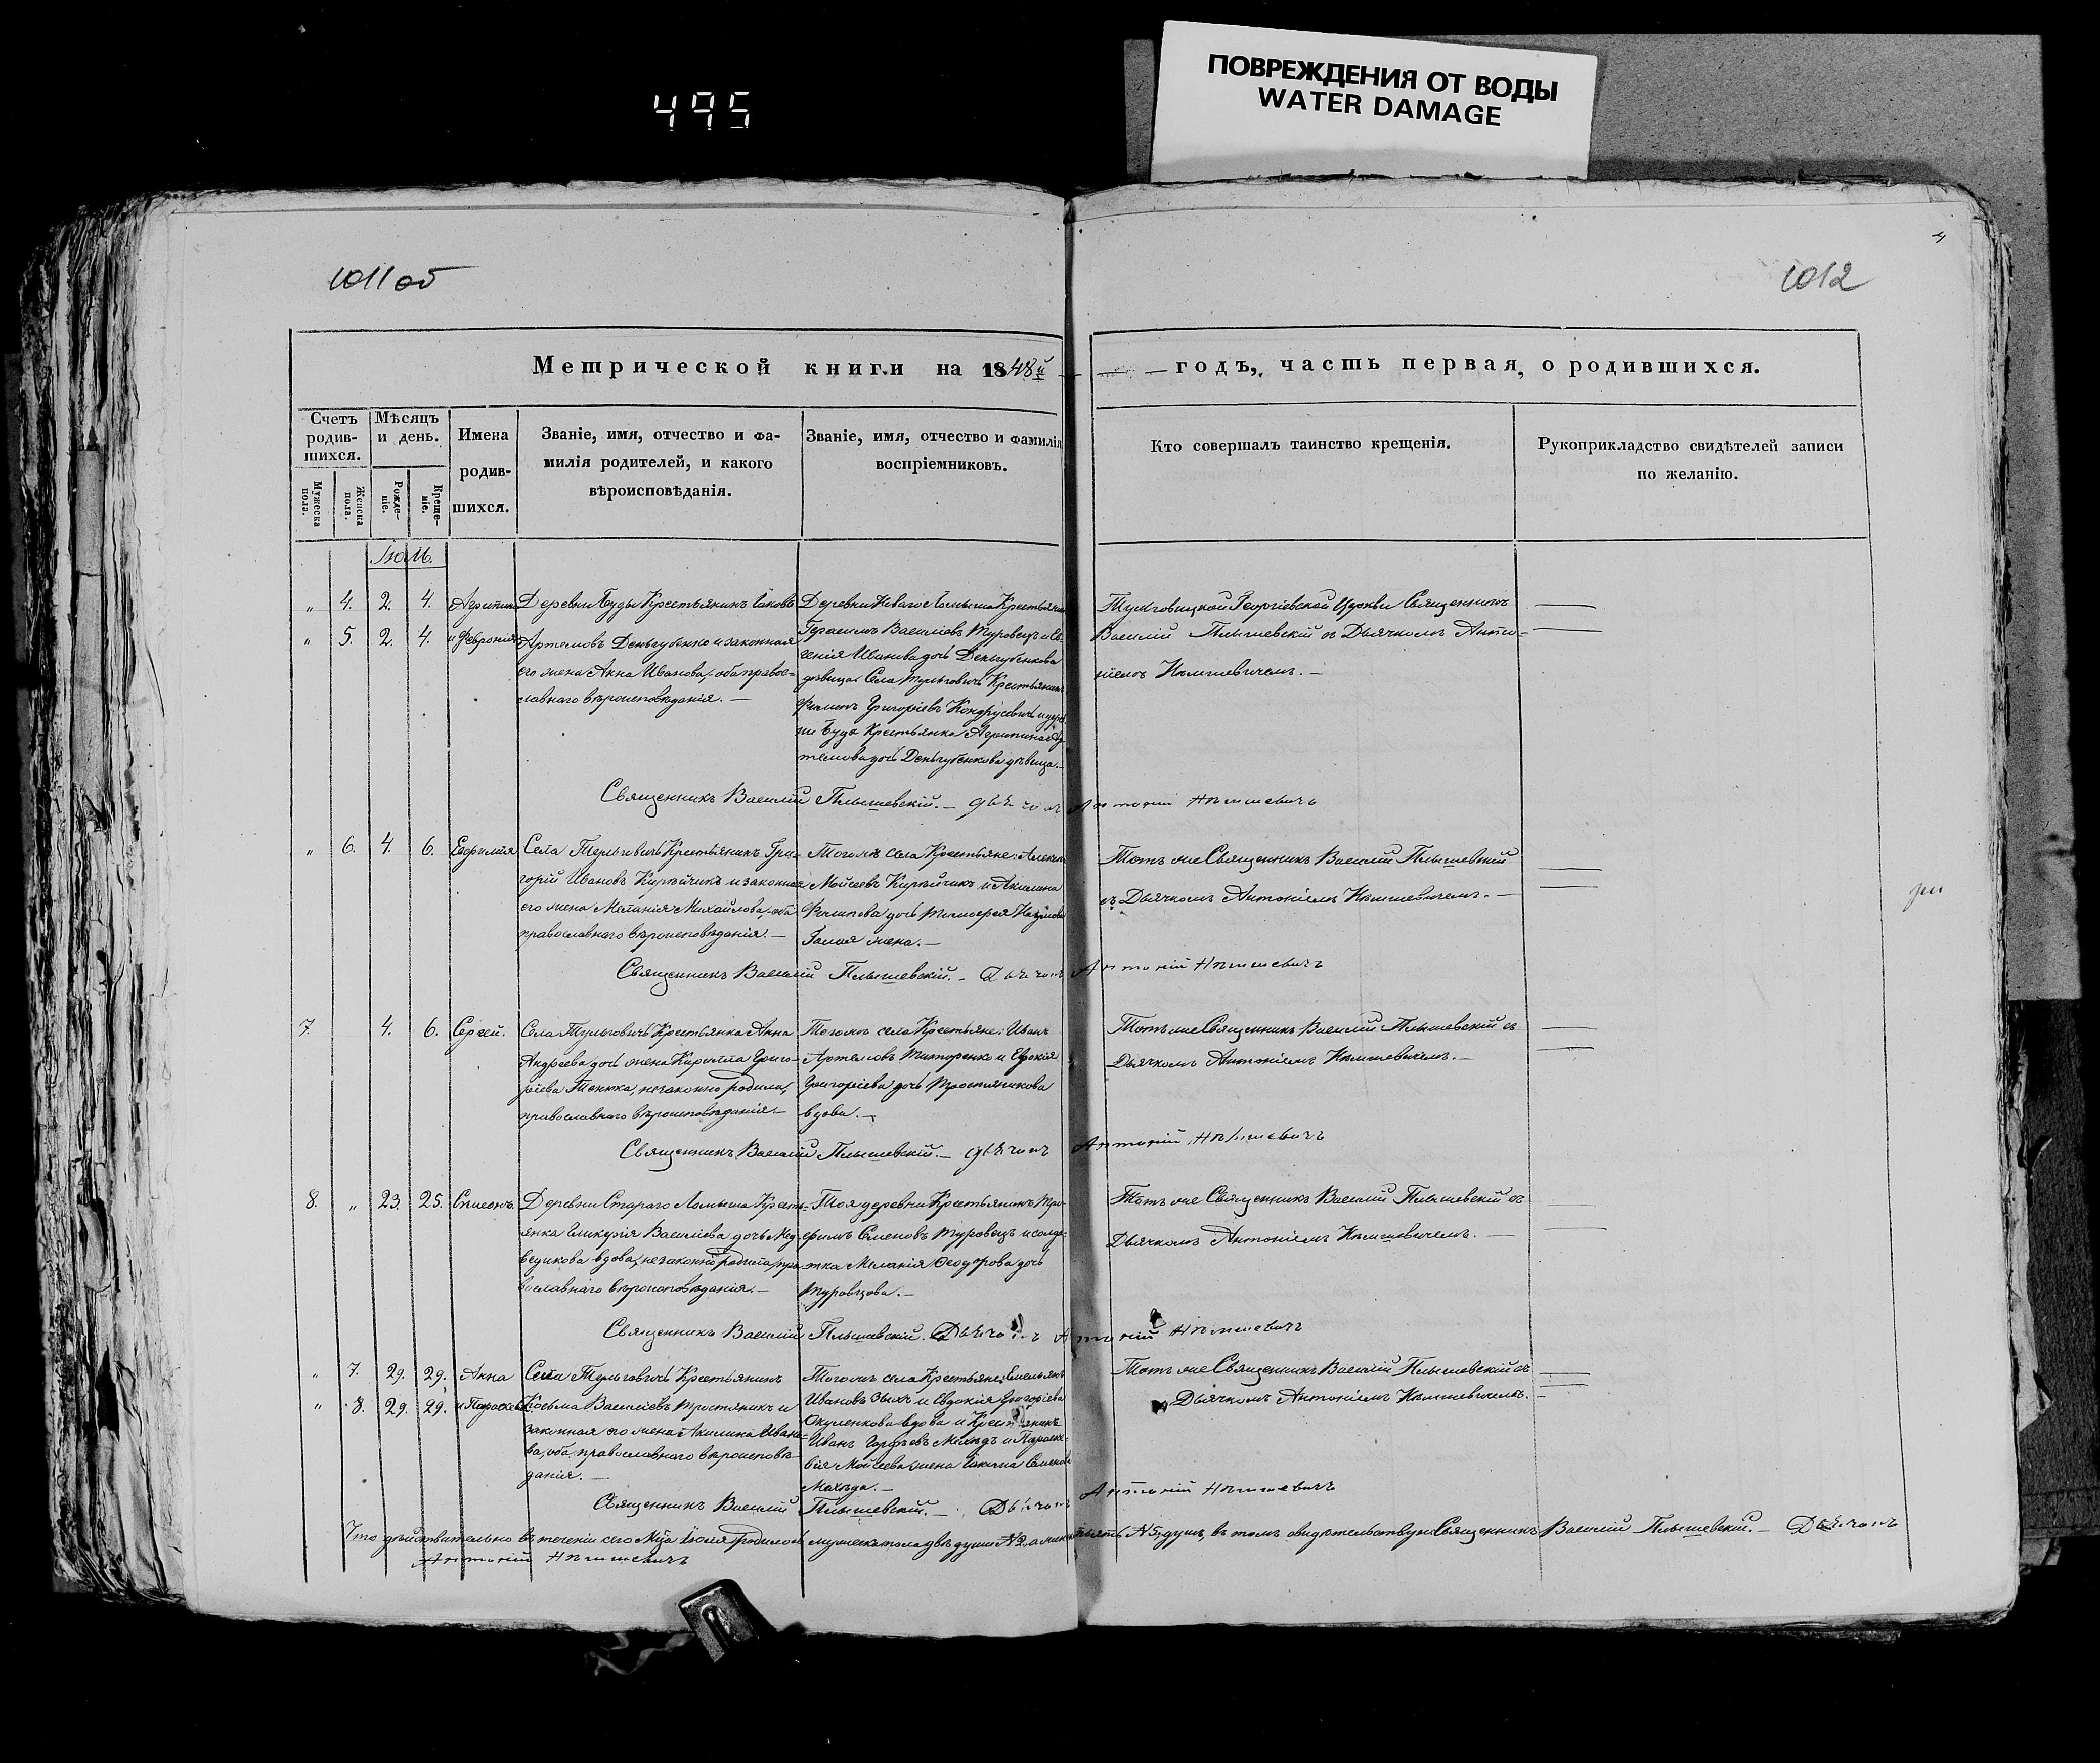 495
ПОВРЕЖДЕНИЯ ОТ ВОДЫ
WATER DAMAGE
4
1011 об
1012
Метрической книги на 1848й
годъ, часть первая, о родившихся.
Счетъ родив-шихся.
Мѣсяцъ и день.
Имена родив-шихся.
Званіе, имя, отчество и фа-
милія родителей, и какого
вѣроисповѣданія.
Званіе, имя, отчество и фамилія
воспріемниковъ.
Кто совершалъ таинство крещенія.
Рукоприкладство свидѣтелей записи
по желанію.
Мужеска пола.
Женска пола.
Рожде-ніе.
Креще-ніе.
Іюль.
" 4. 2. 4. Агрипина
" 5. 2. 4. и Феврония
Деревни Буды Крестьянинъ Іаковъ
Артемовъ Деньгубенко и законная
его жена Анна Иванова, оба право-
славнаго вѣроисповѣданія. —
Деревни Новаго Ломыша Крестьянин
Герасимъ Василіевъ Туровецъ и Ев-
генія Иванова дочь Деньгубенкова
дѣвица. Села Тульговичь Крестьянинъ
Филипъ Григоріевъ Кондрусевичъ и дерев-
ни Буды Крестьянка Агрипина Ар-
темова дочь Деньгубенкова дѣвица. —
Тульговицкой Георгіевской Церкви Священникъ
Василій Плышевскій съ Дьячкомъ Анто-
ніемъ Нѣмшевичемъ. —
Священникъ Василій Плышевскій. — дьячокъ Антоній
" 6. 4. 6. Евфимія
Села Тульговичь Крестьянинъ Гри-
горій Ивановъ Кирѣйчикъ и законная
его жена Меланія Михайлова, оба
православнаго вѣроисповѣданія. —
Того жъ села Крестьяне: Алексѣй
Мойсеевъ Кирѣйчикъ и Акилина
Филипова дочь Тимофея Наумова
жена. —
Тотъ же Священникъ Василій Плышевскій
съ Дьячкомъ Антоніемъ Нѣмшевичемъ. —
Священникъ Василій Плышевскій. — Дьячокъ Антоній
7. 4. 6. Сергѣй.
Села Тульговичь Крестьянка Анна
Андреева дочь жена Кирилла Григо-
ріева незаконно родила,
православнаго вѣроисповѣданія. —
Того жъ села Крестьяне: Иванъ
Артемовъ Титоренко и Евдокія
Григоріева дочь Тростяникова
вдова. —
Тотъ же Священникъ Василій Плышевскій съ
Дьячкомъ Антоніемъ Нѣмшевичемъ. —
Священникъ Василій Плышевскій. — дьячокъ Антоній
8. " 23. 25.
Деревни Стараго Ломыша Кресть-
янка Гликерія Василіева дочь Мед-
ведикова вдова, незаконно родила, пра-
вославнаго вѣроисповѣданія. —
Тоя деревни Крестьянинъ Тро-
фимъ Семеновъ Туровецъ и солда-
тка Меланія Феодорова дочь
Туровцова. —
Тотъ же Священникъ Василій Плышевскій съ
Дьячкомъ Антоніемъ Нѣмшевичемъ. —
Священникъ Василій Плышевскій. Дьячокъ Антоній
" 7. 29. 29. Анна
" 8. 29. 29. и Параскева
Села Тульговичь Крестьянинъ
Косьма Василіевъ Тростяникъ и
законная его жена Акилина Ивано-
ва, оба православнаго вѣроисповѣ-
данія. —
Того жъ села Крестьяне: Емельянъ
Ивановъ Зыкъ и Евдокія Григоріева
Окуленкова вдова и Крестьянинъ
Иванъ и Параске-
вія Мойсеева жена
Тотъ же Священникъ Василій Плышевскій съ
Дьячкомъ Антоніемъ Нѣмшевичемъ. —
Священникъ Василій Плышевскій. — Дьячокъ Антоній
Что дѣйствительно въ теченіи сего Мца Іюля родилось мужеска пола двѣ души №2, а женска пять №5, душъ, въ томъ свидѣтельствуемъ Священникъ Василій Плышевскій. — Дьячокъ
Антоній